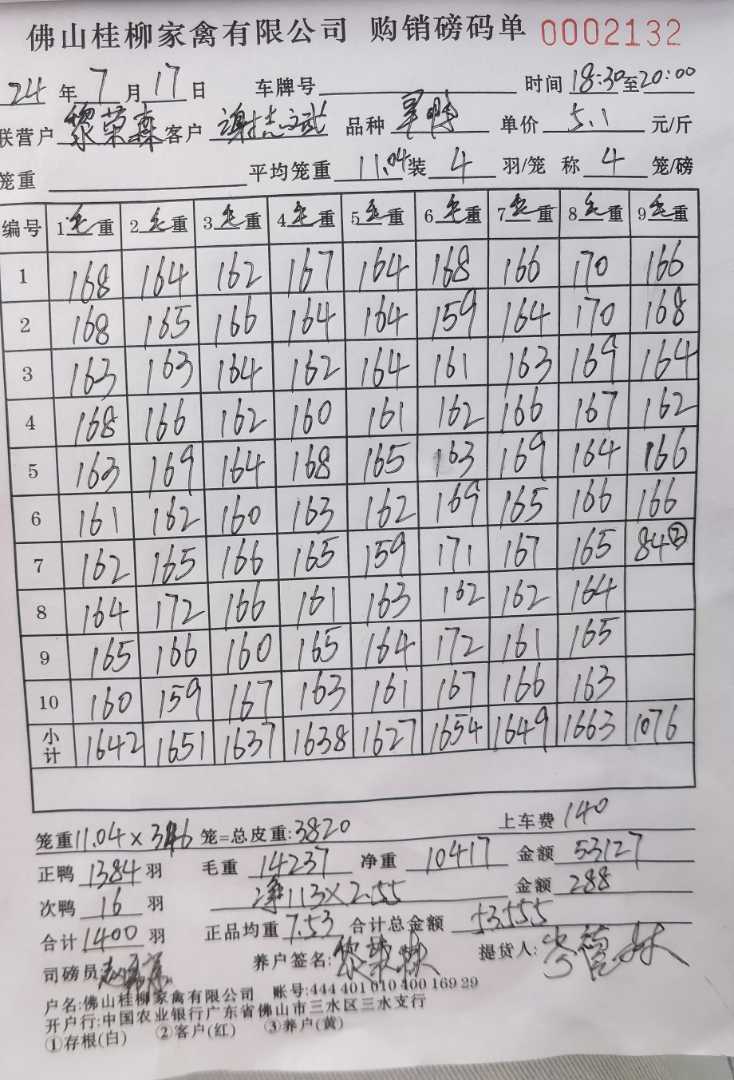 佛山桂柳家禽有限公司 购销磅码单 0002132
24 年 7 月 17 日 车牌号 时间 18:30 至 20:00
联营户 黎荣森 客户 谢志武 品种 单价 5.1 元/斤
笼重 平均笼重 11.04 装 4 羽/笼 称 4 笼/磅
编号 1 毛 重 2 毛 重 3 毛 重 4 毛 重 5 毛 重 6 毛 重 7 毛 重 8 毛 重 9 毛 重
1 168 164 162 167 164 168 166 170 166
2 168 165 166 164 164 159 164 170 168
3 163 163 164 162 164 161 163 169 164
4 168 166 162 160 161 162 166 167 162
5 163 169 164 168 165 163 169 164 166
6 161 162 160 163 162 169 165 166 166
7 162 165 166 165 159 171 167 165 84②
8 164 172 166 161 163 162 162 164
9 165 166 160 165 164 172 161 165
10 160 159 167 163 161 167 166 163
小计 1642 1651 1637 1638 1627 1654 1649 1663 1076
笼重 11.04 × 346 笼=总皮重: 3820 上车费 140
正鸭 1384 羽 毛重 14237 净重 10417 金额 53127
次鸭 16 羽 净113×2.55 金额 288
合计 1400 羽 正品均重 7.53 合计总金额 53555
司磅员 养户签名: 黎荣森 提货人:
户名:佛山桂柳家禽有限公司 账号:444 401 010 400 169 29
开户行:中国农业银行广东省佛山市三水区三水支行
①存根(白) ②客户(红) ③养户(黄)